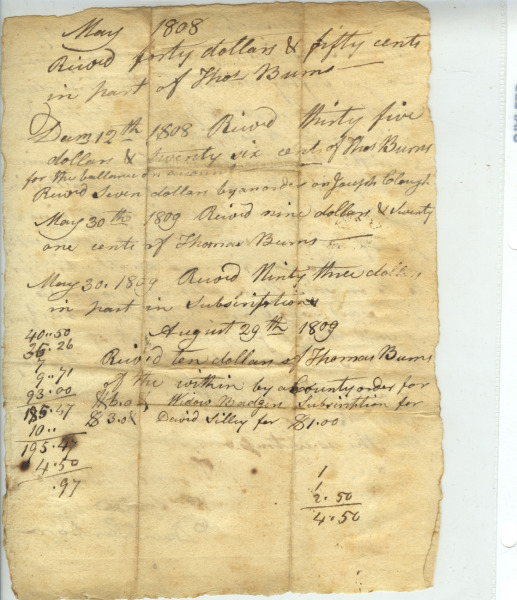 May 1808
Recivd forty dollars & fifty cents
in part of Thos Burns
12th 1808 Recivd thirty five
dollars & twenty six cent of Thos Burns
for the ballance on account
Recivd Seven dollars by an order on Joseph Clough
May 30th 1809 Recivd nine dollars & Seventy
one cents of Thomas Burns
May 30. 1809 Recivd Ninty three dolls
in part in Subscription
August 29th 1809
Recivd ten dollars of Thomas Burns
of the within by a County order for
Widow Badger Subscription for
$3.0 David Silley for $1.00
40..50
35.26
7
9..71
93.00
185.47
10..
195.47
4.50
.97
1
1
2.50
4.50